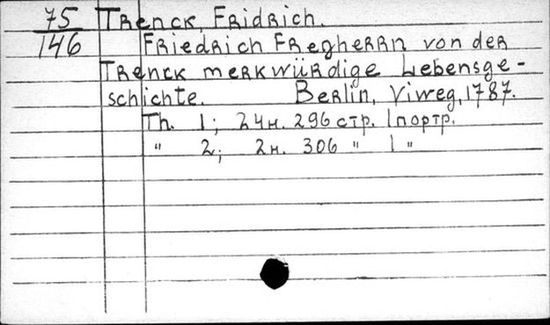 75 Trenck, Fridrich.
146 Friedrich Freyherrn von der
Trenck merkwürdige Lebensge-
schichte. Berlin, Viweg, 1787.
Th. 1; 24н. 296 стр. 1 портр.
" 2; 2н. 306 " 1 "